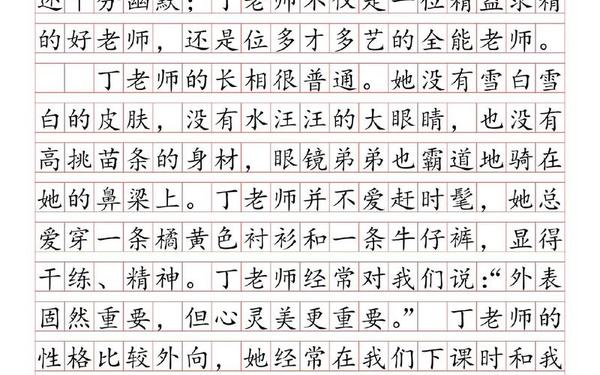 还十分幽默；丁老师不仅是一位精益求精
的好老师，还是位多才多艺的全能老师。
丁老师的长相很普通。她没有雪白雪
白的皮肤，没有水汪汪的大眼睛，也没有
高挑苗条的身材，眼镜弟弟也霸道地骑在
她的鼻梁上。丁老师并不爱赶时髦，她总
爱穿一条橘黄色衬衫和一条牛仔裤，显得
干练、精神。丁老师经常对我们说：“外表
固然重要，但心灵美更重要。” 丁老师的
性格比较外向，她经常在我们下课时和我